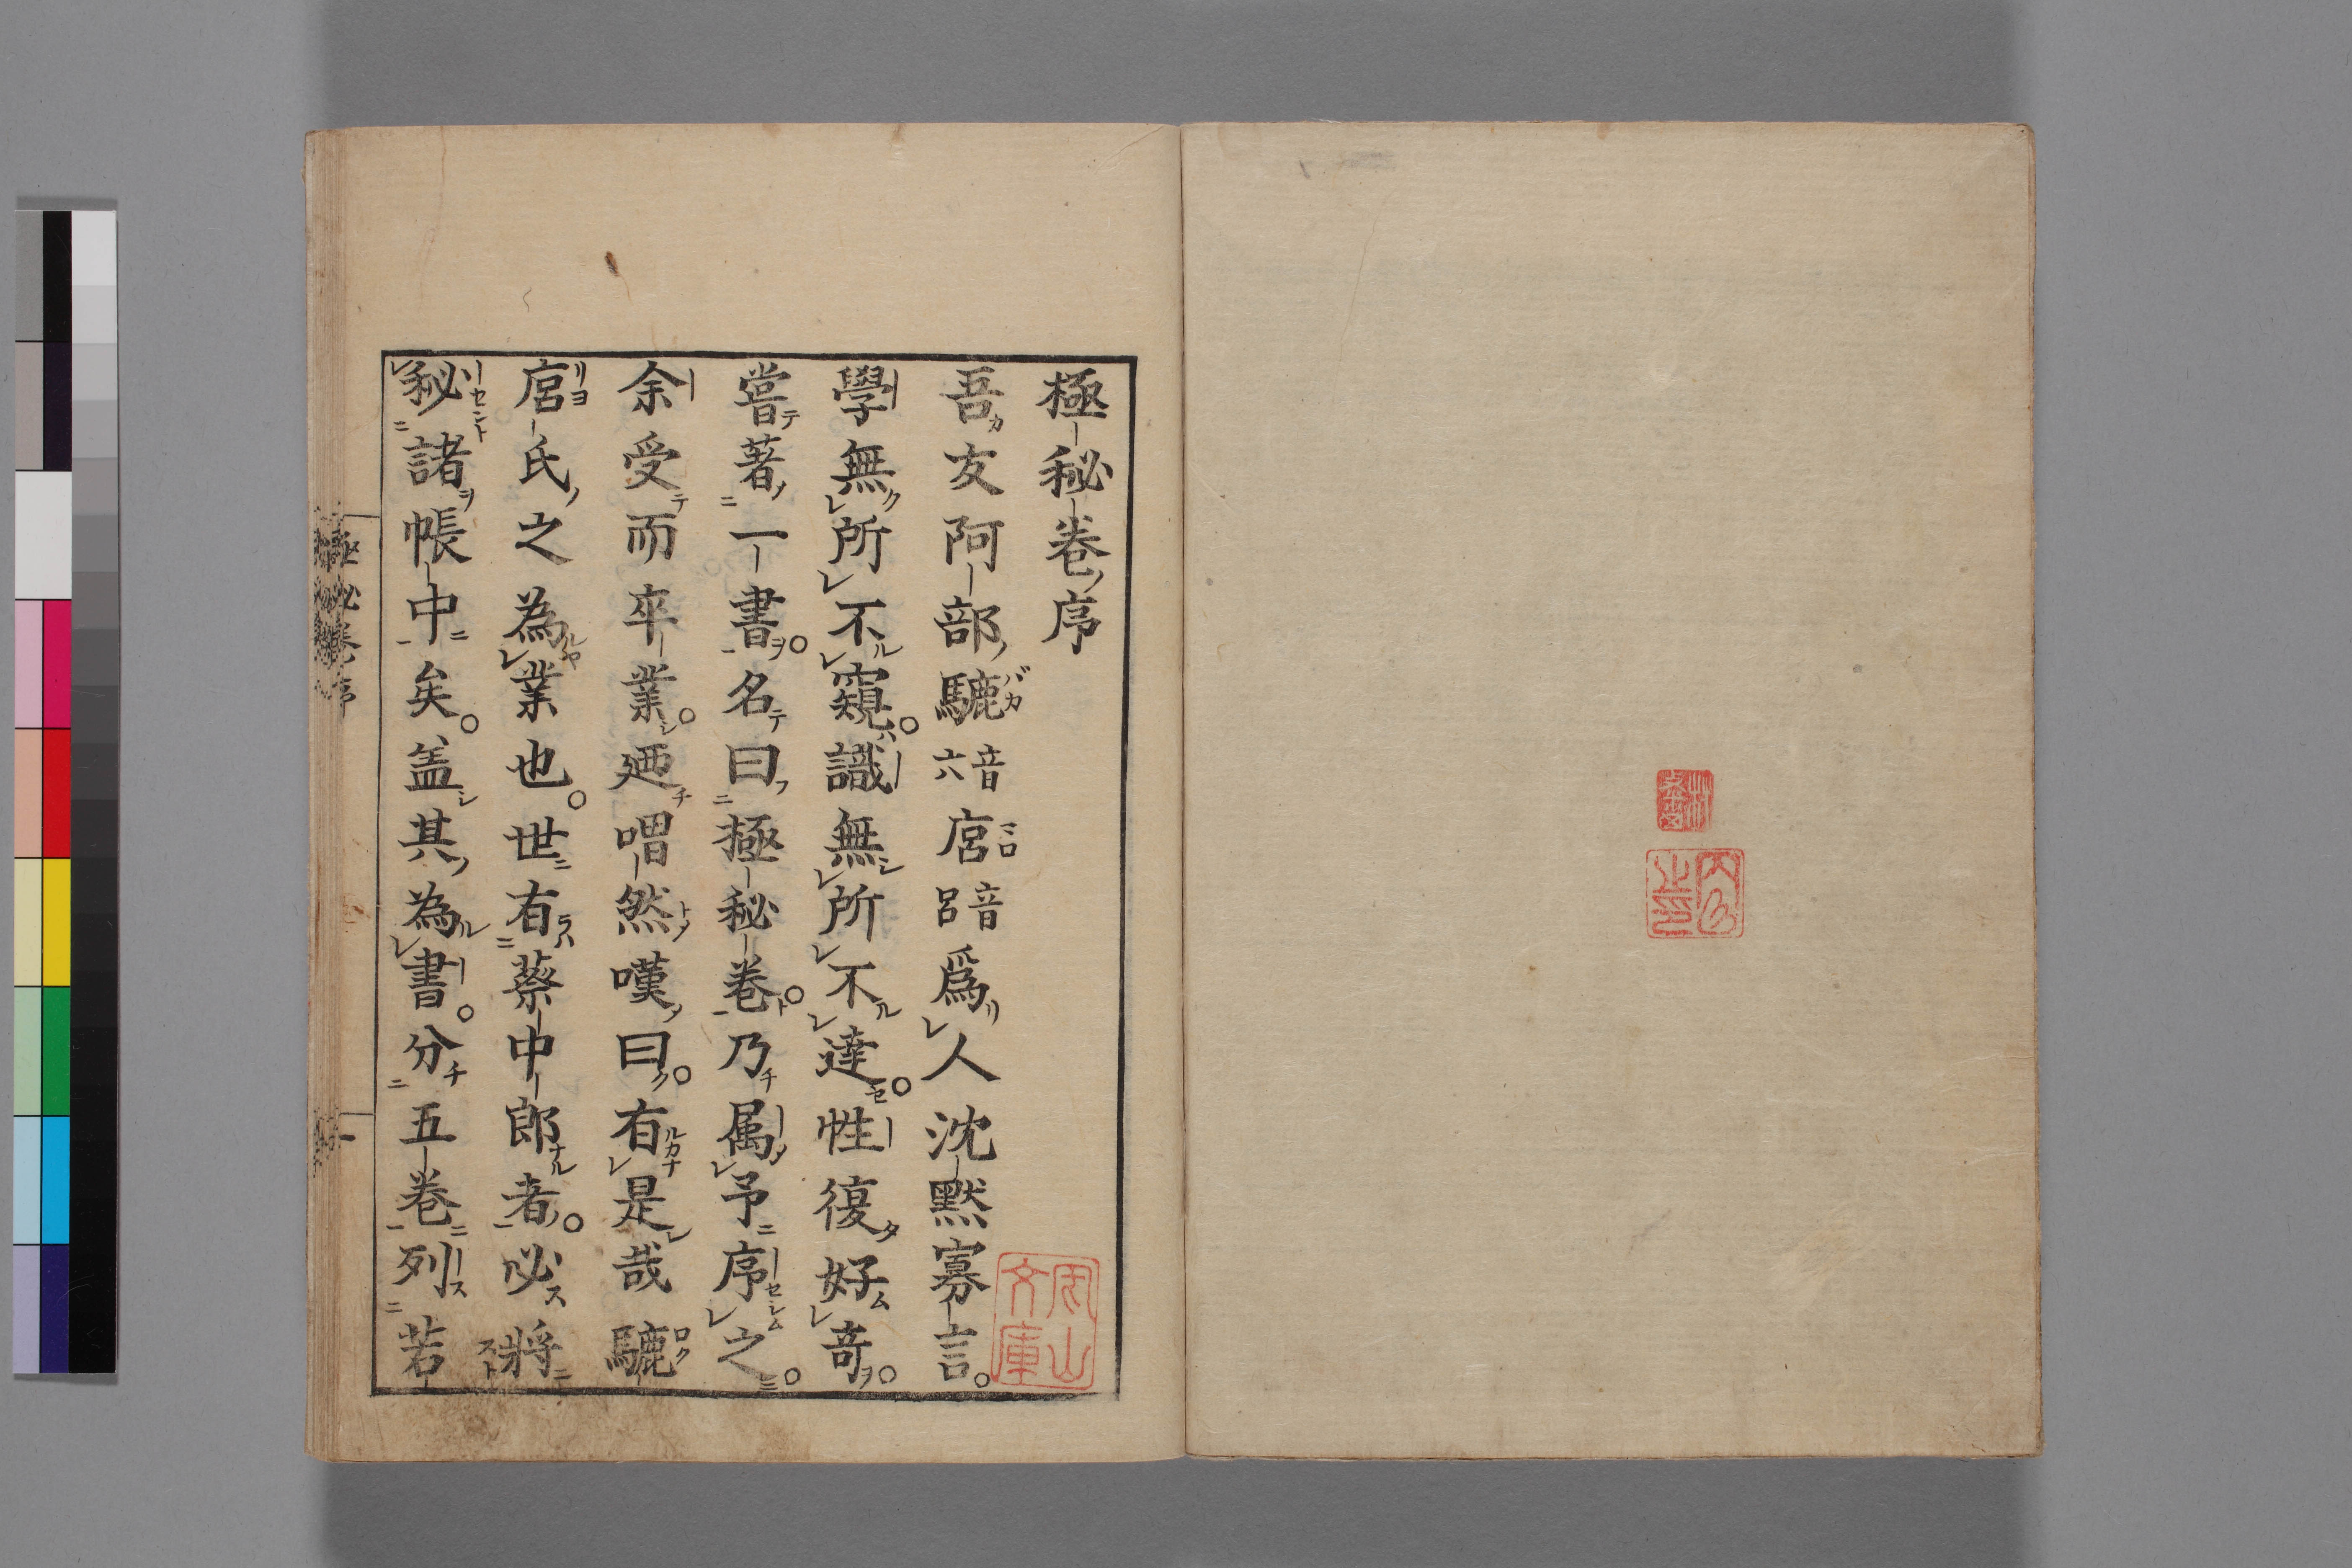 極秘巻序
吾友阿部𩥇音六㝫音呂爲人沈黙寡言
學無所不窺識無所不達性復好竒
嘗著一書名曰極秘巻乃属予序之
余受而卒業廼喟然嘆曰有是哉𩥇
㝫氏之為業也世有蔡中郎者必將
秘諸帳中矣盖其為書分五巻列若